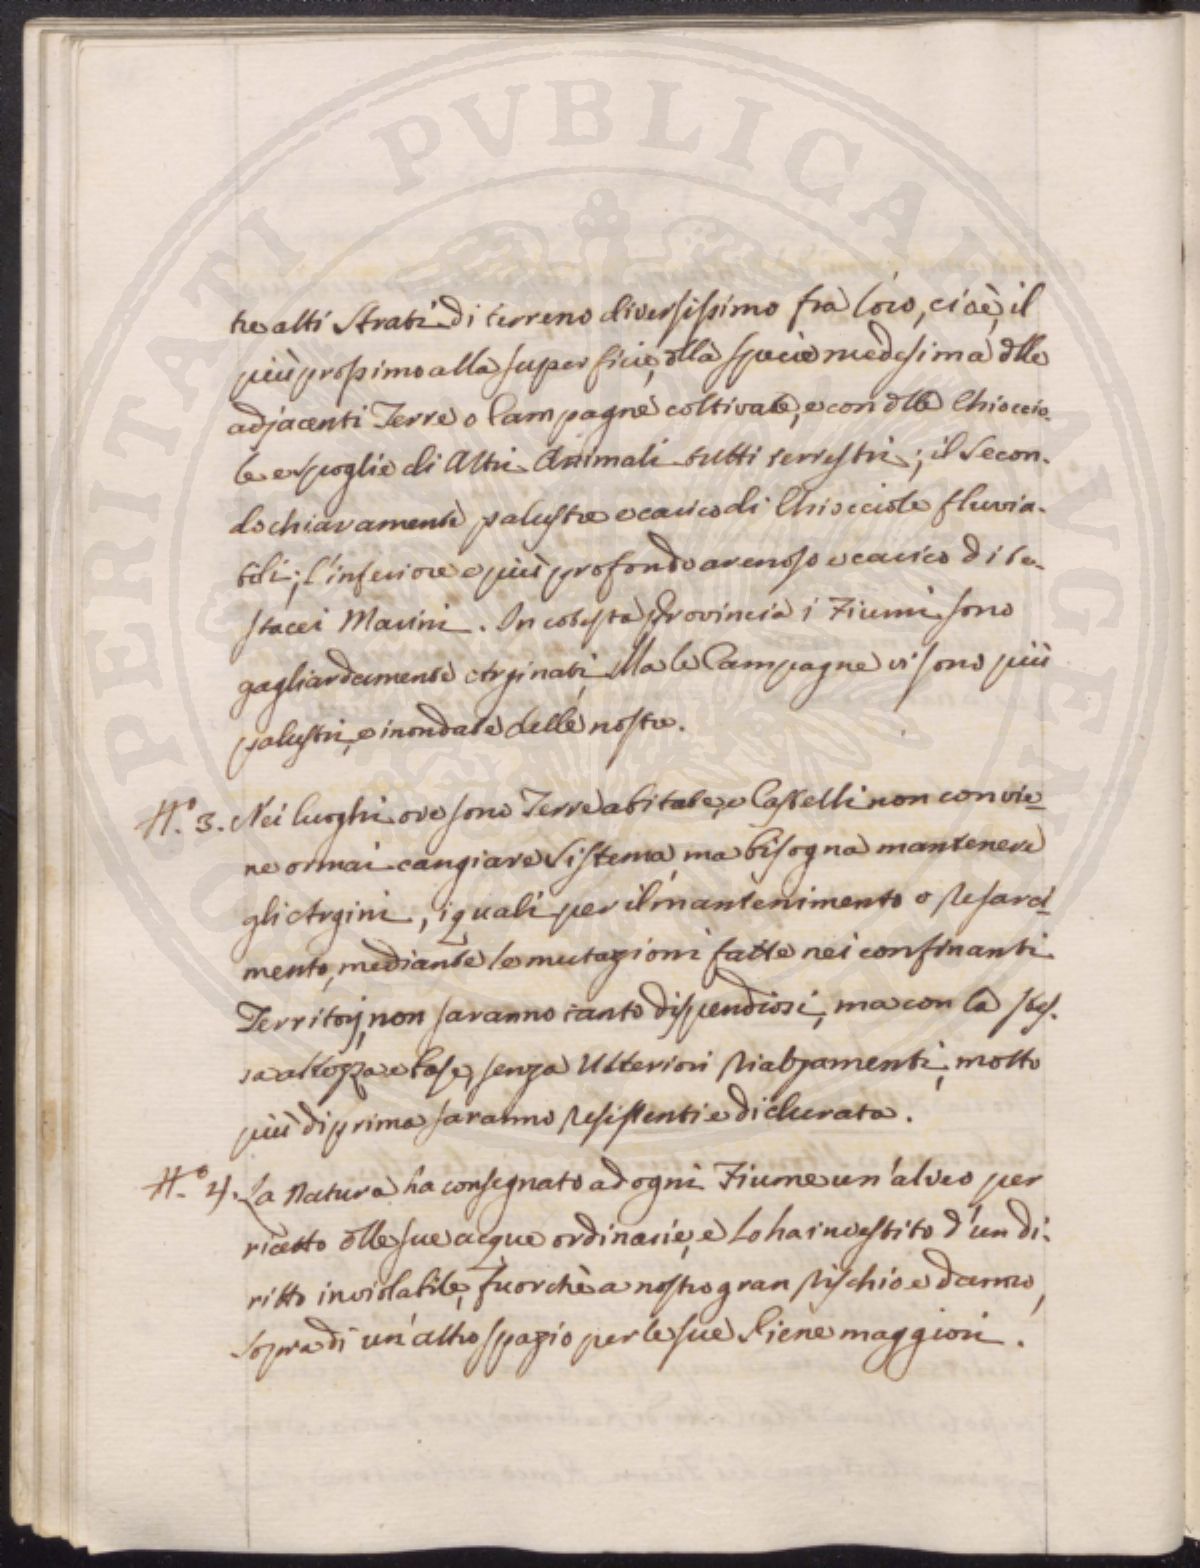 PROSPERITATI PVBLICAE AVGENDAE
tre alti Strati di terreno diversissimo fra loro, cioè, il
più prossimo alla superficie, dlla specie medesima dlle
adjacenti Terre o Campagne coltivate, e con dlle Chioccio-
le e spoglie di Altri Animali tutti terrestri; il Secon-
do chiaramente palustre e carico di Chiocciole fluvia-
tili; l'inferiore e più profondo arenoso e carico di te-
stacei Marini. In cotesta Provincia i Fiumi sono
gagliardamente Arginati, Ma le Campagne vi sono più
palustri, e inondate delle nostre.
N.° 3. Nei luoghi ove sono Terre abitate, e Castelli non convie-
ne ormai cangiare Sistema, ma bisogna mantenere
gli Argini, i quali per il mantenimento o Resarci-
mento, mediante le mutazioni fatte nei confinanti
Territorj, non saranno tanto dispendiosi, ma con la stes-
sa altezza e base, senza Ulteriori Rialzamenti, molto
più di prima saranno Resistenti e di durata.
N.° 4. La Natura ha consegnato ad ogni Fiume un'alveo per
ricetto dlle sue acque ordinarie, e lo ha investito d'un di-
ritto inviolabile, fuorchè a nostro gran Rischio e danno,
sopra di un'altro spazio per le sue Piene maggiori.